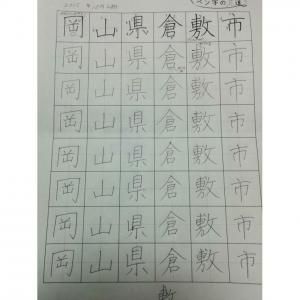 ペン字の
岡山県倉敷市
岡山県倉敷市
岡山県倉敷市
岡山県倉敷市
岡山県倉敷市
岡山県倉敷市
岡山県倉敷市
岡山県倉敷市
敷